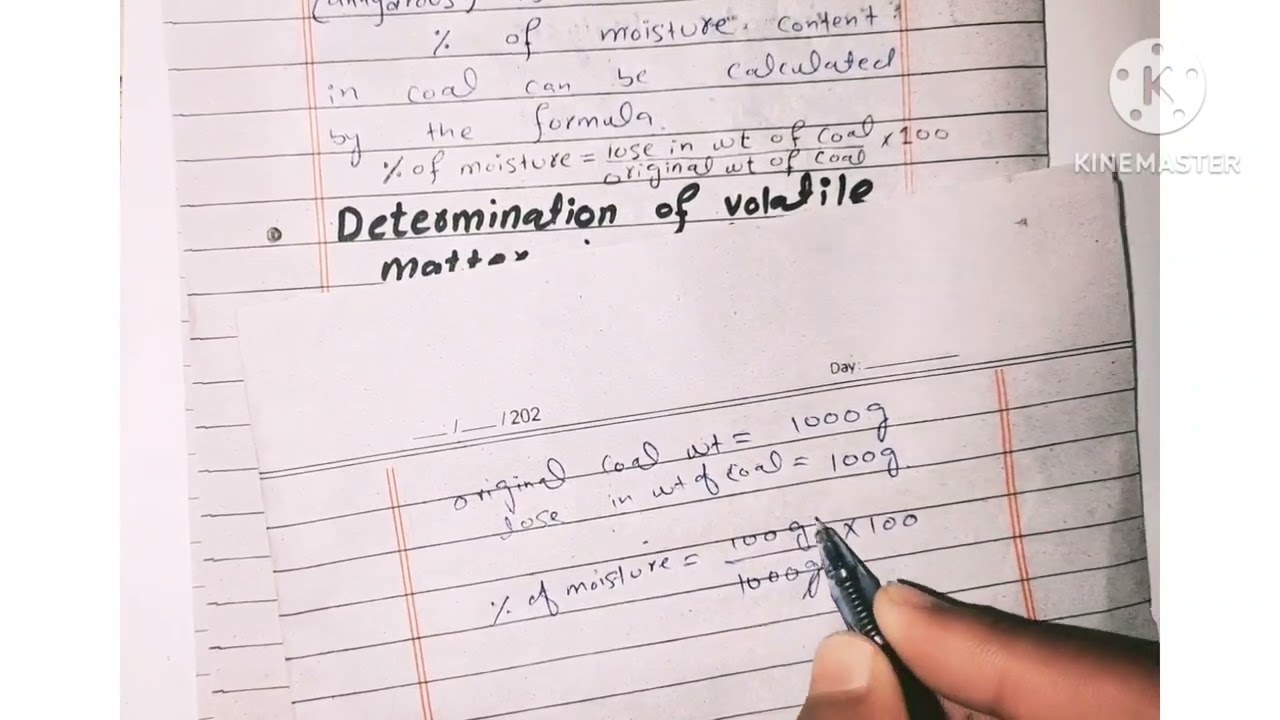 (anhydrous)
% of moisture content
in coal can be calculated
by the formula.
% of moisture = lose in wt of coal / original wt of coal × 100
Determination of volatile
matter
Day:
__ / __ / 202
original coal wt = 1000g
lose in wt of coal = 100g
% of moisture = 100g / 1000g × 100
K
KINEMASTER